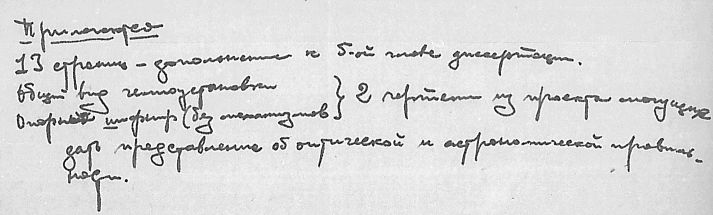 Прилагается
13 страниц – дополнение к 5-ой главе диссертации.
Общий вид гелиоустановки
Опорный шарнир (без механизмов } 2 чертежи из проекта могущие
дать представление об оптической и астрономической правиль-
ности.